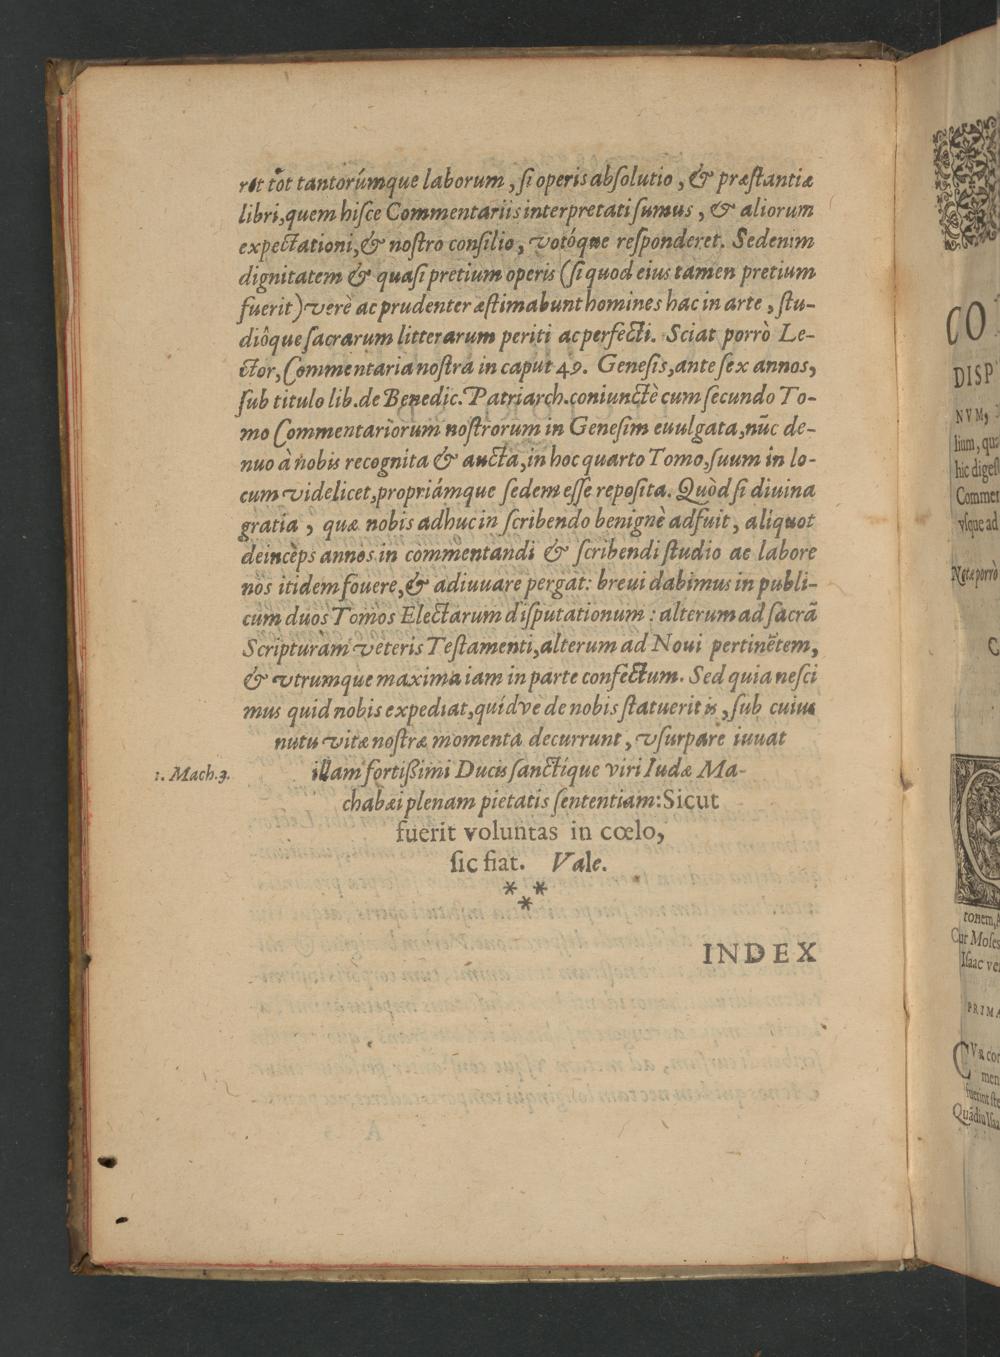 ret tot tantorúmque laborum, ſi operis abſolutio, & præſtantiæ
libri, quem hiſce Commentariis interpretati ſumus, & aliorum
expectationi, & noſtro conſilio, votóque reſponderet. Sed enim
dignitatem & quaſi pretium operis (ſi quod eius tamen pretium
fuerit) verè ac prudenter æſtimabunt homines hac in arte, ſtu-
diôque ſacrarum litterarum periti ac perfecti. Sciat porrò Le-
ctor, Commentaria noſtra in caput 49. Geneſis, ante ſex annos,
ſub titulo lib. de Benedic. Patriarch. coniunctè cum ſecundo To-
mo Commentariorum noſtrorum in Geneſim euulgata, nūc de-
nuo à nobis recognita & aucta, in hoc quarto Tomo, ſuum in lo-
cum videlicet, propriámque ſedem eſſe repoſita. Quòd ſi diuina
gratia, quæ nobis adhuc in ſcribendo benignè adfuit, aliquot
deinceps annos in commentandi & ſcribendi ſtudio ac labore
nos itidem fouere, & adiuuare pergat: breui dabimus in publi-
cum duos Tomos Electarum diſputationum: alterum ad ſacrā
Scripturam veteris Teſtamenti, alterum ad Noui pertinētem,
& vtrumque maxima iam in parte confectum. Sed quia neſci
mus quid nobis expediat, quídve de nobis ſtatuerit is, ſub cuius
nutu vitæ noſtræ momenta decurrunt, vſurpare iuuat
1. Mach. 3.
illam fortißimi Ducis ſanctíque viri Iudæ Ma-
chabæi plenam pietatis ſententiam: Sicut
fuerit voluntas in cœlo,
ſic fiat. Vale.
* *
*
INDEX
CO
DISP
NVM,
lium, qu
hic digeſ
Commen
vſque ad
Notæ porrò
tonem,
Cur Moſes
Iſaac ve
PRIMA
men
fuerint
Quādiu Iſaa